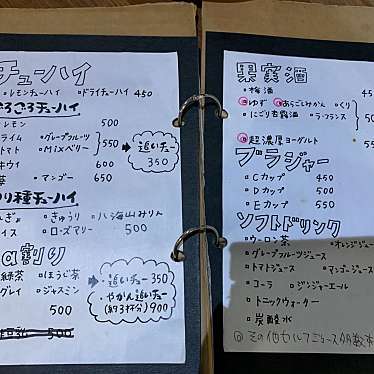 チューハイ
レモンチューハイ ・ドライチューハイ 450
ごろごろチューハイ
レモン 500
ライム ・グレープフルーツ 550
トマト ・Mixベリー
→ 追いチュー 350
キウイ 600
・マンゴー 650
り種チューハイ
・きゅうり ・八海山みりん
イス ・ローズマリー 500
割り
緑茶 ・ほうじ茶
グレイ ・ジャスミン
500
→ ・追いチュー 350
・やかん追いチュー
(約3杯分) 900
500
果実酒
・梅酒 450
・ゆず ・あらごしみかん ・くり
・にごり杏露酒 ・ラ・フランス 50
・超濃厚ヨーグルト 55
ブラジャー
・Cカップ 450
・Dカップ 500
・Eカップ 550
ソフトドリンク
・ウーロン茶 ・オレンジジュー
・グレープフルーツジュース
・トマトジュース ・マンゴージュース
・コーラ ・ジンジャーエール
・トニックウォーター
・炭酸水
◎その他セルフジュース多数